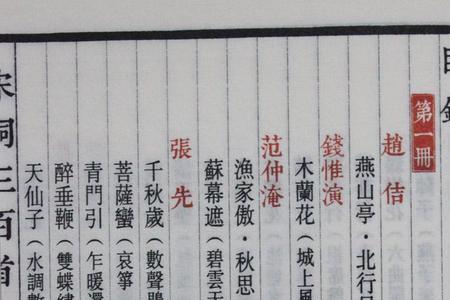 目錄
第一冊
趙佶
燕山亭·北行見
錢惟演
木蘭花（城上風
范仲淹
漁家傲·秋思
蘇幕遮（碧雲天
張先
千秋歲（數聲鶗
菩薩蠻（哀箏
青門引（乍暖還
醉垂鞭（雙蝶繡
天仙子（水調數
宋詞三百首